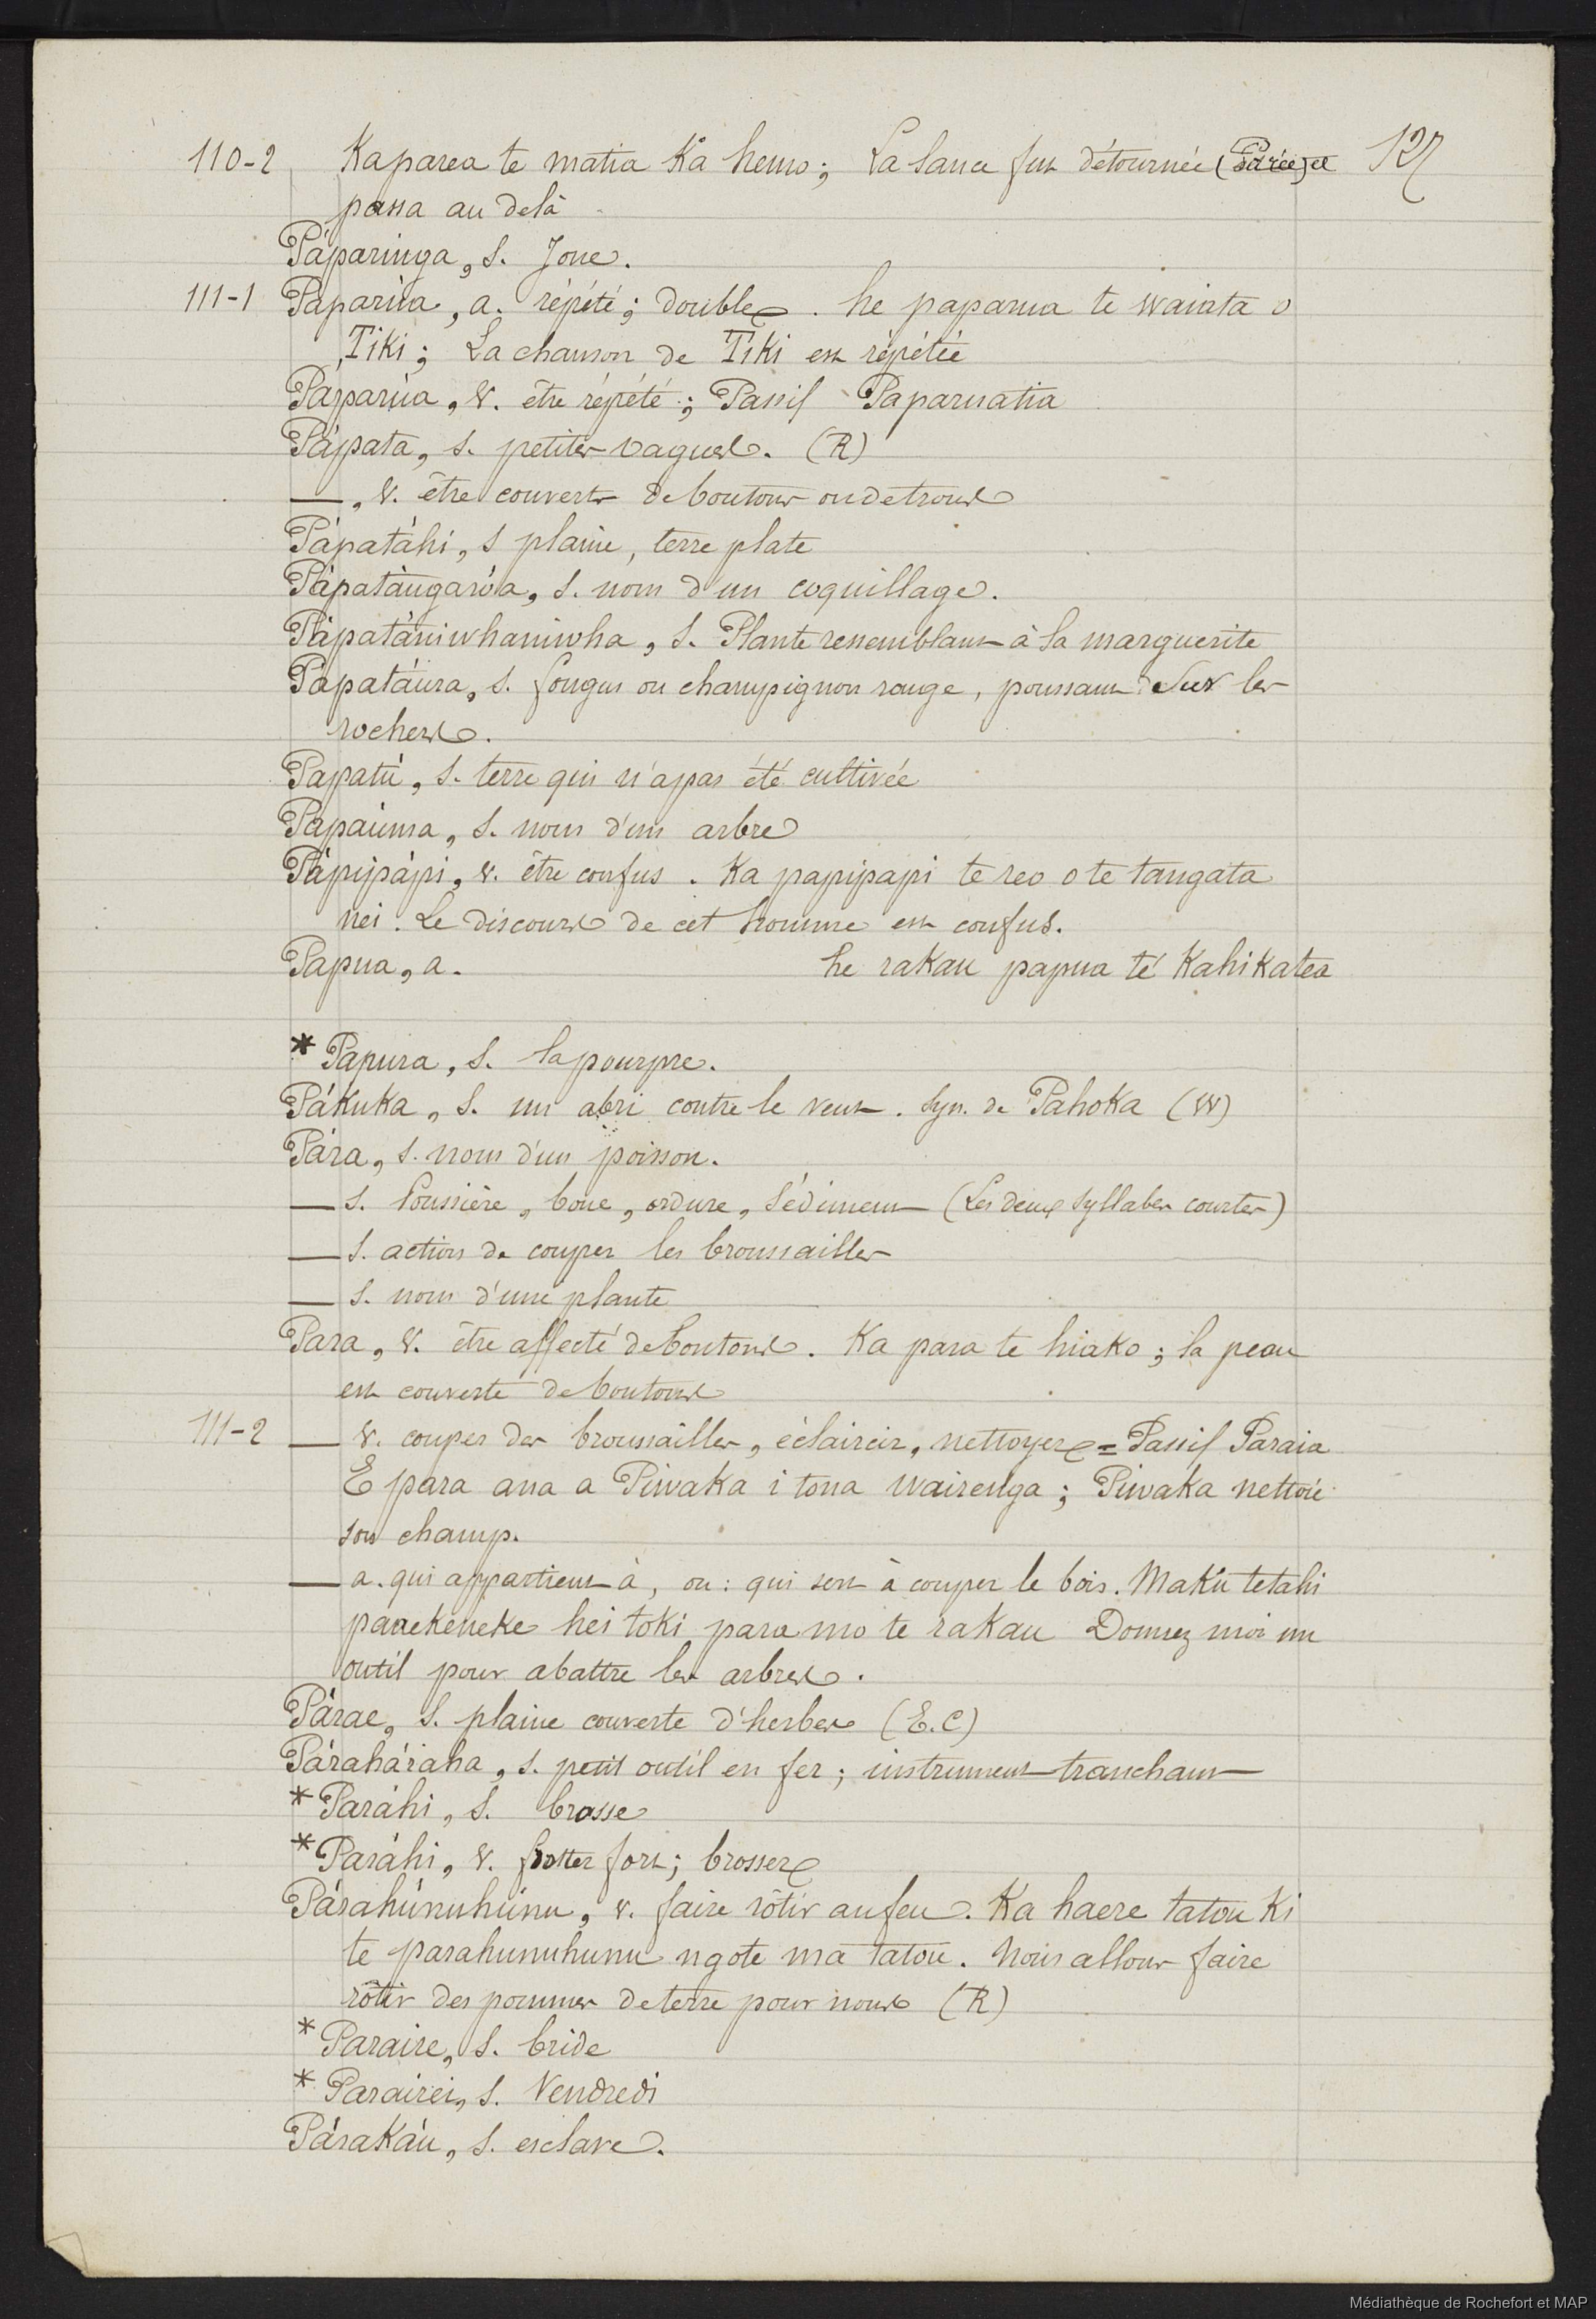 127
110-2 Kaparea te matia Ka hemo; La lance fut détournée (Parée) et
passa au delà
Páparinga, s. Joue.
111-1 Paparúa, a. répété; double. he paparua te waiata o
Tiki; La chanson de Tiki est répétée
Páparúa, v. être répété; Passif Paparuatia
Pápata, s. petites vagues. (R)
—, v. être couvert de boutons ou de trous
Pápatáhi, s plaine, terre plate
Pápatàngaróa, s. nom d'un coquillage.
Pápatániwhaniwha, s. Plante ressemblant à la marguerite
Papatáura, s. fongus ou champignon rouge, poussant sur les
rochers.
Papatú, s. terre qui n'a pas été cultivée
Papaúma, s. nom d'un arbre
Pápipápi, v. être confus. Ka papipapi te reo o te tangata
nei. Le discours de cet homme est confus.
Papua, a. he rakau papua té Kahikatea
* Papura, s. la pourpre.
Pákuka, s. un abri contre le vent. Syn. de Pahoka (W)
Pára, s. nom d'un poisson.
— s. Poussière, boue, ordure, sédiment (Les deux syllabes courtes)
— s. action de couper les broussailles
— s. nom d'une plante
Para, v. être affecté de boutons. Ka para te hiako; la peau
est couverte de boutons
111-2 — v. couper des broussailles, éclaircir, nettoyer = Passif Paraia
E para ana a Piwaka i tona wairenga; Piwaka nettoie
son champ.
— a. qui appartient à, ou: qui sert à couper le bois. Makú tetahi
panekeneke hei toki para mo te rakau Donnez moi un
outil pour abattre les arbres.
Párae, s. plaine couverte d'herbes (E.C)
Páraháraha, s. petit outil en fer; instrument tranchant
* Paráhi, s. brosse
* Paráhi, v. frotter fort; brosser
Párahúnuhúnu, v. faire rôtir au feu. Ka haere tatou ki
te parahunuhunu ngote ma tatou. Nous allons faire
rôtir des pommes de terre pour nous (R)
* Paraire, s. bride
* Parairei, s. Vendredi
Párakáu, s. esclave.
Médiathèque de Rochefort et MAP